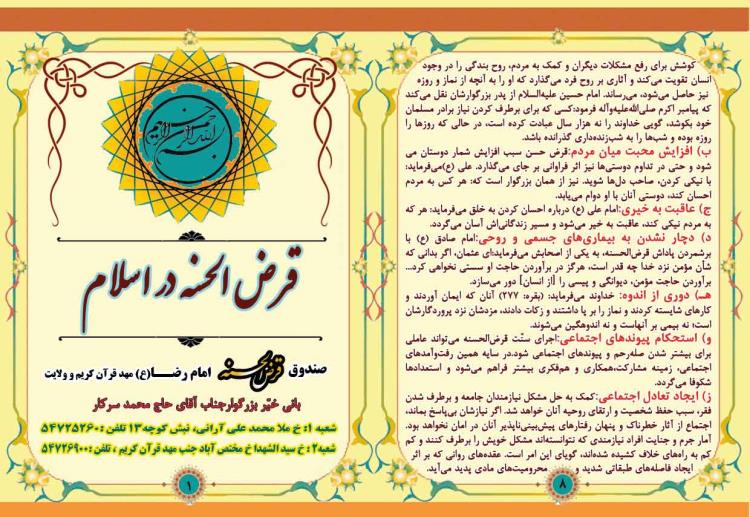 بسم الله الرحمن الرحیم
قرض الحسنه در اسلام
صندوق قرض الحسنه امام رضا(ع) مهد قرآن کریم و ولایت
بانی خیّر بزرگوارجناب آقای حاج محمد سرکار
شعبه ۱: خ ملا محمد علی آرانی، نبش کوچه۱۳ تلفن :۵۴۷۲۵۲۶۰
شعبه۲: خ سید الشهدا خ مختص آباد جنب مهد قرآن کریم ، تلفن :۵۴۷۲۶۹۰۰
۱
کوشش برای رفع مشکلات دیگران و کمک به مردم، روح بندگی را در وجود
انسان تقویت می‌کند و آثاری بر روح فرد می‌گذارد که او را به آنچه از نماز و روزه
نیز حاصل می‌شود، می‌رساند. امام حسین علیه‌السلام از پدر بزرگوارشان نقل می‌کند
که پیامبر اکرم صلی‌الله‌علیه‌وآله فرمود:کسی که برای برطرف کردن نیاز برادر مسلمان
خود بکوشد، گویی خداوند را نه هزار سال عبادت کرده است، در حالی که روزها را
روزه بوده و شب‌ها را به شب‌زنده‌داری گذرانده باشد.
ب) افزایش محبت میان مردم:قرض حسن سبب افزایش شمار دوستان می
شود و حتی در تداوم دوستی‌ها نیز اثر فراوانی بر جای می‌گذارد. علی (ع)می‌فرماید:
با نیکی کردن، صاحب دل‌ها شوید. نیز از همان بزرگوار است که: هر کس به مردم
احسان کند، دوستی آنان با او دوام می‌یابد.
ج) عاقبت به خیری:امام علی (ع) درباره احسان کردن به خلق می‌فرماید: هر که
به مردم نیکی کند، عاقبت به خیر می‌شود و مسیر زندگانی‌اش آسان می‌گردد.
د) دچار نشدن به بیماری‌های جسمی و روحی:امام صادق (ع) با
برشمردن پاداش قرض‌الحسنه، به یکی از اصحابش می‌فرماید:ای عثمان، اگر بدانی که
شأن مؤمن نزد خدا چه قدر است، هرگز در برآوردن حاجت او سستی نخواهی کرد...
برآوردن حاجت مؤمن، دیوانگی و پیسی را [از انسان] دور می‌سازد.
هـ) دوری از اندوه: خداوند می‌فرماید: (بقره: ۲۷۷) آنان که ایمان آوردند و
کارهای شایسته کردند و نماز را بر پا داشتند و زکات دادند، مزدشان نزد پروردگارشان
است؛ نه بیمی بر آنهاست و نه اندوهگین می‌شوند.
و) استحکام پیوندهای اجتماعی:اجرای سنّت قرض‌الحسنه می‌تواند عاملی
برای بیشتر شدن صله‌رحم و پیوندهای اجتماعی شود.در سایه همین رفت‌وآمدهای
اجتماعی، زمینه مشارکت،همکاری و هم‌فکری بیشتر فراهم می‌شود و استعدادها
شکوفا می‌گردد.
ز) ایجاد تعادل اجتماعی:کمک به حل مشکل نیازمندان جامعه و برطرف شدن
فقر، سبب حفظ شخصیت و ارتقای روحیه آنان خواهد شد. اگر نیازشان بی‌پاسخ بماند،
اجتماع از آثار خطرناک و پنهان رفتارهای پیش‌بینی‌ناپذیر آنان در امان نخواهد بود.
آمار جرم و جنایت افراد نیازمندی که نتوانسته‌اند مشکل خویش را برطرف کنند و کم
کم به راه‌های خلاف کشیده شده‌اند، گویای این امر است. عقده‌های روانی که بر اثر
ایجاد فاصله‌های طبقاتی شدید و محرومیت‌های مادی پدید می‌آید.
۸